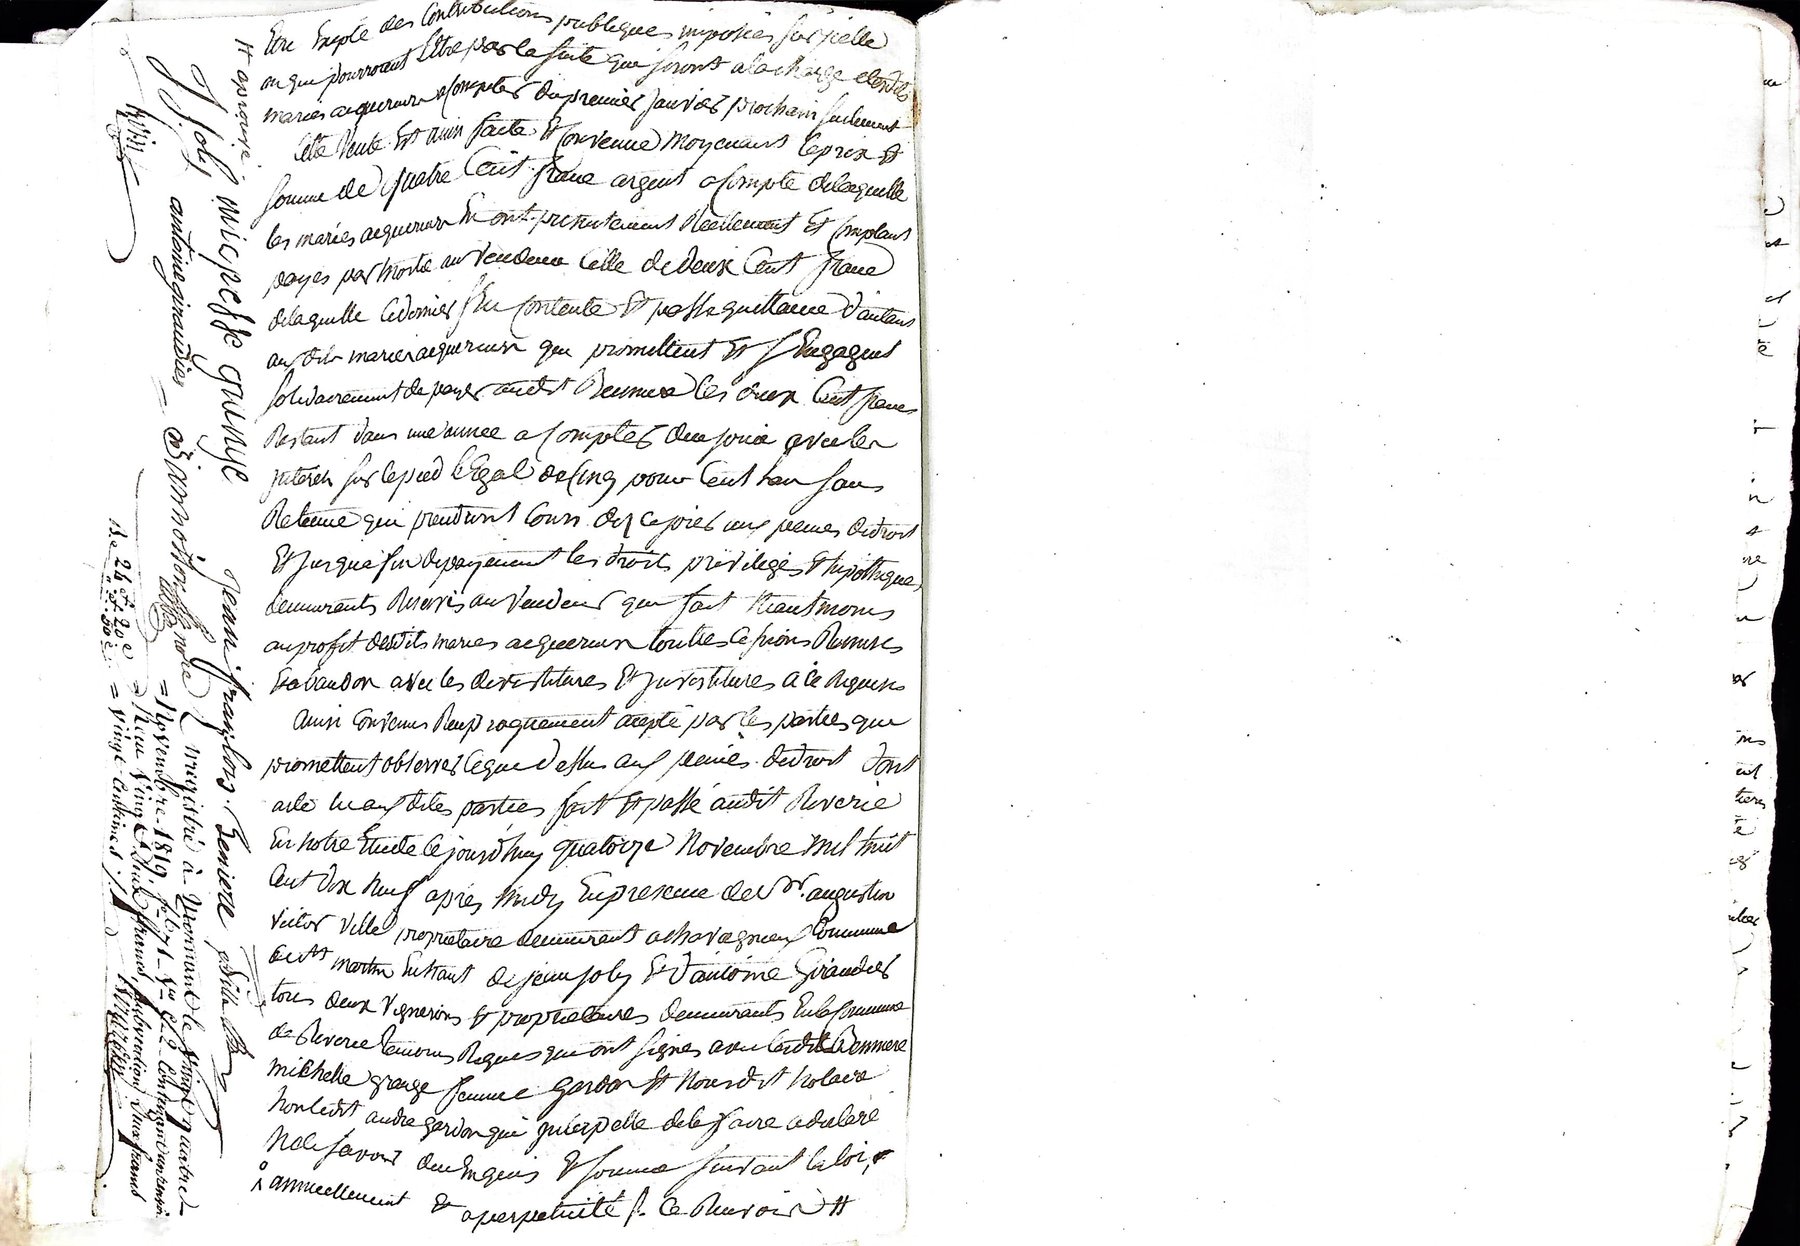 Etre Exepté des Contributions publiques imposées sur jcelle
ou qui pourroient Etre par la suite qui seront a la charge desdits
mariés acquereurs a Compter du premier janvier prochain seulement
Cette Vente Est ainsi faite Et Convenue Moyenant le prix Et
somme de quatre Cent franc argent a Compte de laquelle
les mariés acquereurs En ont presentement Reellement Et Comptant
payés par moitié au Vendeur Celle de Deux Cent franc
de laquelle Ce dernier s'En Contente Et passe quittance d'autant
aux dits mariés acquereurs qui promettent Et s'Engagent
solidairement de payer audit les deux Cent francs
Restant dans une année a Compter de ce jour avec les
jnterets sur le pied légal de Cinq pour Cent l'an sans
Retenue qui prendront Cours dez ce jour aux peines de droit
Et jusqu'a fin de payement les droits privilèges Et hipothèques
demeurants Reservés au Vendeur qui fait Neantmoins
au profit desdits mariés acquereurs toutes Cessions Remises
Et abandon avec les devestitures Et jnvestitures a Ce Requises
Ainsi Convenu Reciproquement accepté par les parties qui
promettent observer Ce que Dessus aux peines de droit Dont
acte lu aux dites parties fait Et passé audit Riverie
En notre Etude Ce jourd'huy quatorze Novembre Mil huit
Cent Dix Neuf après Midy En presence de Sr. augustin
Victor Ville proprietaire demeurant a chavagneux Commune
de St martin En haut de jean joly Et d'antoine Giraudier
tous deux Vignerons Et proprietaires demeurants En la Commune
de Riverie temoins Requis qui ont signés avec ledit
michelle grange femme gardon Et Nousdit Notaire
Non ledit andré gardon qui jnterpellé de le faire a declaré
Ne le savoir de ce Enquis Et sommé suivant la loi,
annuellement Et a perpetuité /. Ce Renvoi #
# aprouvé
J Joly micheLLe grange jean françois
antoine giraudier = Ville
Enregistré à Mornant le vingt quatre
= Novembre 1819 fo. 71 Vo C. 2 Contenant un renvoi
24 et 20 c = Recu vingt deux francs, subvention deux francs
2 et 20 c = vingt centimes